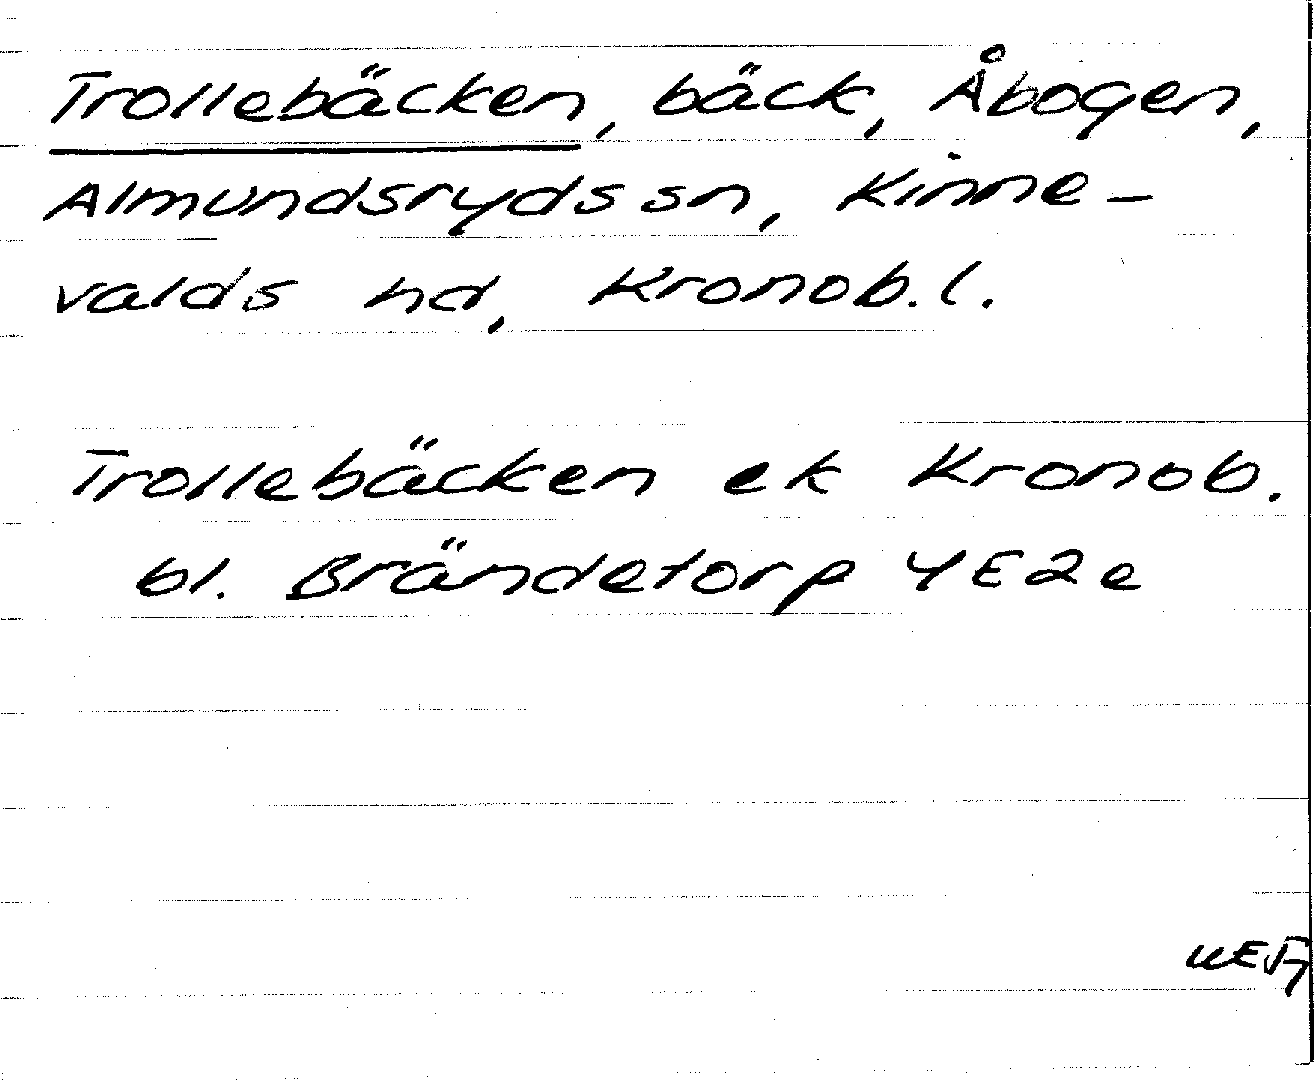 Trollebäcken, bäck, Åbogen,
Almundsryds sn, Kinne-
valds hd, Kronob. l.
Trollebäcken ek Kronob.
bl. Brändetorp 4E2e